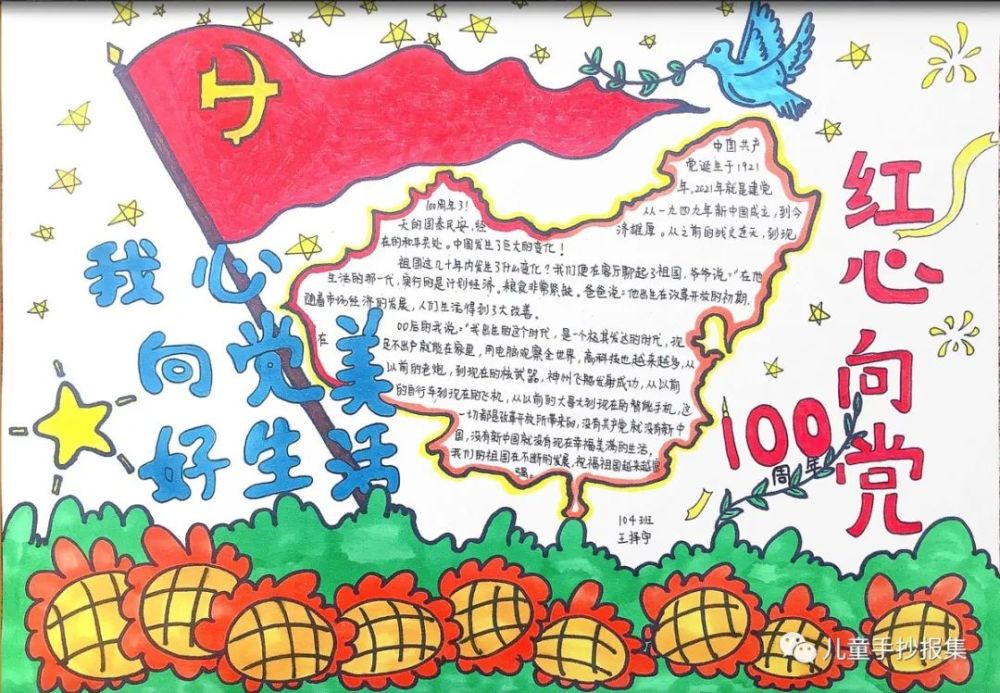 我心
向党美
好生活
红心向党
100周年
中国共产
党诞生于1921
年,2021年就是建党
100周年了!从一九四九年新中国成立,到今
天的国泰民安,经济雄厚。从之前的战火连天,到现
在的和平共处。中国发生了巨大的变化!
祖国这几十年内发生了什么变化?我们便在客厅聊起了祖国,爷爷说:"在他
生活的那一代,实行的是计划经济。粮食非常紧缺。爸爸说:他出生在改革开放的初期,
随着市场经济的发展,人们生活得到了大改善。
00后的我说:"我出生的这个时代,是一个极其发达的时代,现
在足不出户就能在家里,用电脑观察全世界,高科技也越来越多,从
以前的老炮,到现在的核武器,神州飞船发射成功,从以前
的自行车到现在的飞机,从以前的大哥大到现在的智能手机,这
一切都是改革开放所带来的,没有共产党就没有新中
国,没有新中国就没有现在幸福美满的生活,
我们的祖国在不断的发展,祝福祖国越来越
强。
104班
王择宇
儿童手抄报集